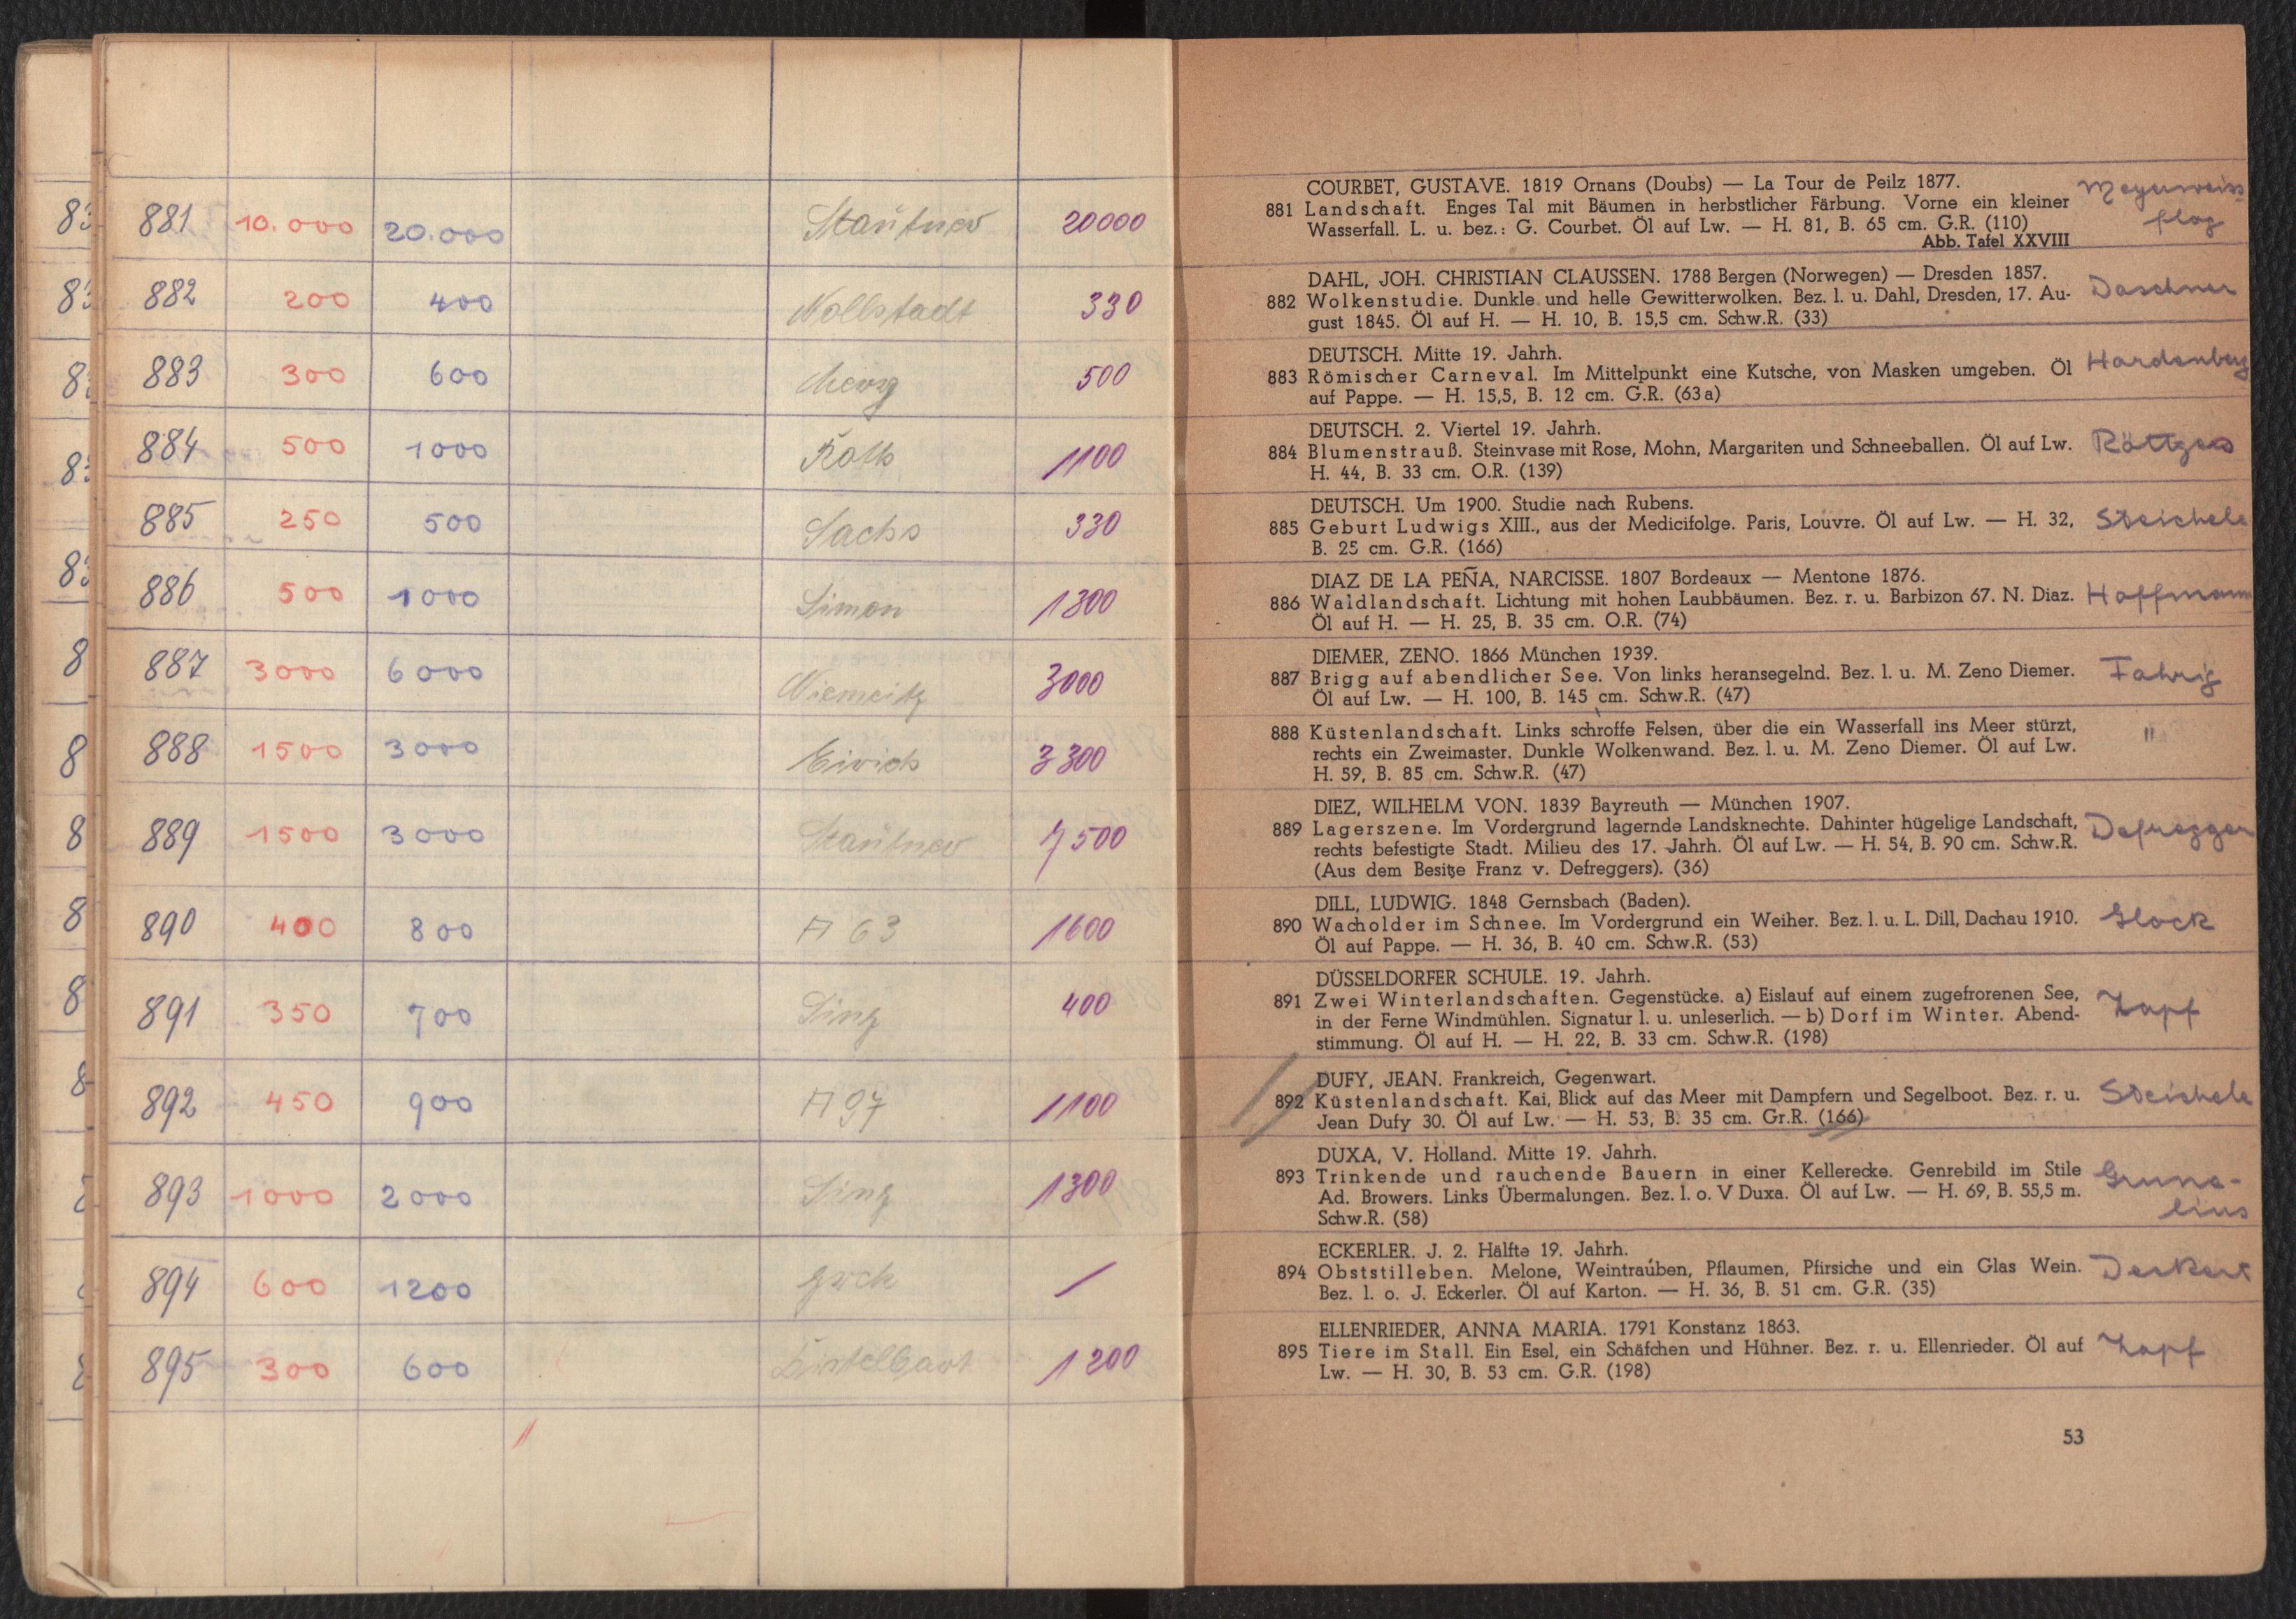 881 10.000 20.000 Stautner 20000
882 200 400 Nollstadt 330
883 300 600 500
884 500 1000 Roth 1100
885 250 500 Sachs 330
886 500 1000 Simon 1300
887 3000 6000 3000
888 1500 3000 Eirich 3300
889 1500 3000 Stautner 7500
890 400 800 A 63 1600
891 350 700 Sing 400
892 450 900 A 97 1100
893 1000 2000 Sing 1300
894 600 1200 /
895 300 600 Distelbart 1200
83
83
8
83
83
8
8
8
8
8
8
COURBET, GUSTAVE. 1819 Ornans (Doubs) — La Tour de Peilz 1877.
881 Landschaft. Enges Tal mit Bäumen in herbstlicher Färbung. Vorne ein kleiner
Wasserfall. L. u. bez.: G. Courbet. Öl auf Lw. — H. 81, B. 65 cm. G.R. (110)
Abb. Tafel XXVIII
Meyerweiss-
flog
DAHL, JOH. CHRISTIAN CLAUSSEN. 1788 Bergen (Norwegen) — Dresden 1857.
882 Wolkenstudie. Dunkle und helle Gewitterwolken. Bez. l. u. Dahl, Dresden, 17. Au-
gust 1845. Öl auf H. — H. 10, B. 15,5 cm. Schw.R. (33)
Daschner
DEUTSCH. Mitte 19. Jahrh.
883 Römischer Carneval. Im Mittelpunkt eine Kutsche, von Masken umgeben. Öl
auf Pappe. — H. 15,5, B. 12 cm. G.R. (63a)
Hardenberg
DEUTSCH. 2. Viertel 19. Jahrh.
884 Blumenstrauß. Steinvase mit Rose, Mohn, Margariten und Schneeballen. Öl auf Lw.
H. 44, B. 33 cm. O.R. (139)
Röttgers
DEUTSCH. Um 1900. Studie nach Rubens.
885 Geburt Ludwigs XIII., aus der Medicifolge. Paris, Louvre. Öl auf Lw. — H. 32,
B. 25 cm. G.R. (166)
Steichele
DIAZ DE LA PEÑA, NARCISSE. 1807 Bordeaux — Mentone 1876.
886 Waldlandschaft. Lichtung mit hohen Laubbäumen. Bez. r. u. Barbizon 67. N. Diaz.
Öl auf H. — H. 25, B. 35 cm. O.R. (74)
Hoffmann
DIEMER, ZENO. 1866 München 1939.
887 Brigg auf abendlicher See. Von links heransegelnd. Bez. l. u. M. Zeno Diemer.
Öl auf Lw. — H. 100, B. 145 cm. Schw.R. (47)
Fahrig
888 Küstenlandschaft. Links schroffe Felsen, über die ein Wasserfall ins Meer stürzt,
rechts ein Zweimaster. Dunkle Wolkenwand. Bez. l. u. M. Zeno Diemer. Öl auf Lw.
H. 59, B. 85 cm. Schw.R. (47)
"
DIEZ, WILHELM VON. 1839 Bayreuth — München 1907.
889 Lagerszene. Im Vordergrund lagernde Landsknechte. Dahinter hügelige Landschaft,
rechts befestigte Stadt. Milieu des 17. Jahrh. Öl auf Lw. — H. 54, B. 90 cm. Schw.R.
(Aus dem Besitze Franz v. Defreggers). (36)
Defregger
DILL, LUDWIG. 1848 Gernsbach (Baden).
890 Wacholder im Schnee. Im Vordergrund ein Weiher. Bez. l. u. L. Dill, Dachau 1910.
Öl auf Pappe. — H. 36, B. 40 cm. Schw.R. (53)
Glock
DÜSSELDORFER SCHULE. 19. Jahrh.
891 Zwei Winterlandschaften. Gegenstücke. a) Eislauf auf einem zugefrorenen See,
in der Ferne Windmühlen. Signatur l. u. unleserlich. — b) Dorf im Winter. Abend-
stimmung. Öl auf H. — H. 22, B. 33 cm. Schw.R. (198)
Zapf
DUFY, JEAN. Frankreich, Gegenwart.
892 Küstenlandschaft. Kai, Blick auf das Meer mit Dampfern und Segelboot. Bez. r. u.
Jean Dufy 30. Öl auf Lw. — H. 53, B. 35 cm. Gr.R. (166)
Steichele
DUXA, V. Holland. Mitte 19. Jahrh.
893 Trinkende und rauchende Bauern in einer Kellerecke. Genrebild im Stile
Ad. Browers. Links Übermalungen. Bez. l. o. V Duxa. Öl auf Lw. — H. 69, B. 55,5 m.
Schw.R. (58)
Grune-
lius
ECKERLER. J. 2. Hälfte 19. Jahrh.
894 Obststilleben. Melone, Weintrauben, Pflaumen, Pfirsiche und ein Glas Wein.
Bez. l. o. J. Eckerler. Öl auf Karton. — H. 36, B. 51 cm. G.R. (35)
Deckert
ELLENRIEDER, ANNA MARIA. 1791 Konstanz 1863.
895 Tiere im Stall. Ein Esel, ein Schäfchen und Hühner. Bez. r. u. Ellenrieder. Öl auf
Lw. — H. 30, B. 53 cm. G.R. (198)
Zapf
53